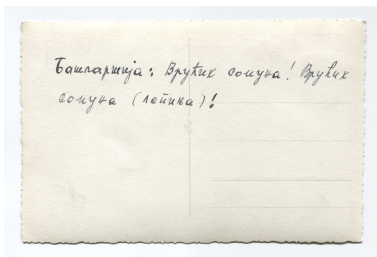 Башчаршија: Врућих сомуна! Врућих
сомуна (лепина)!